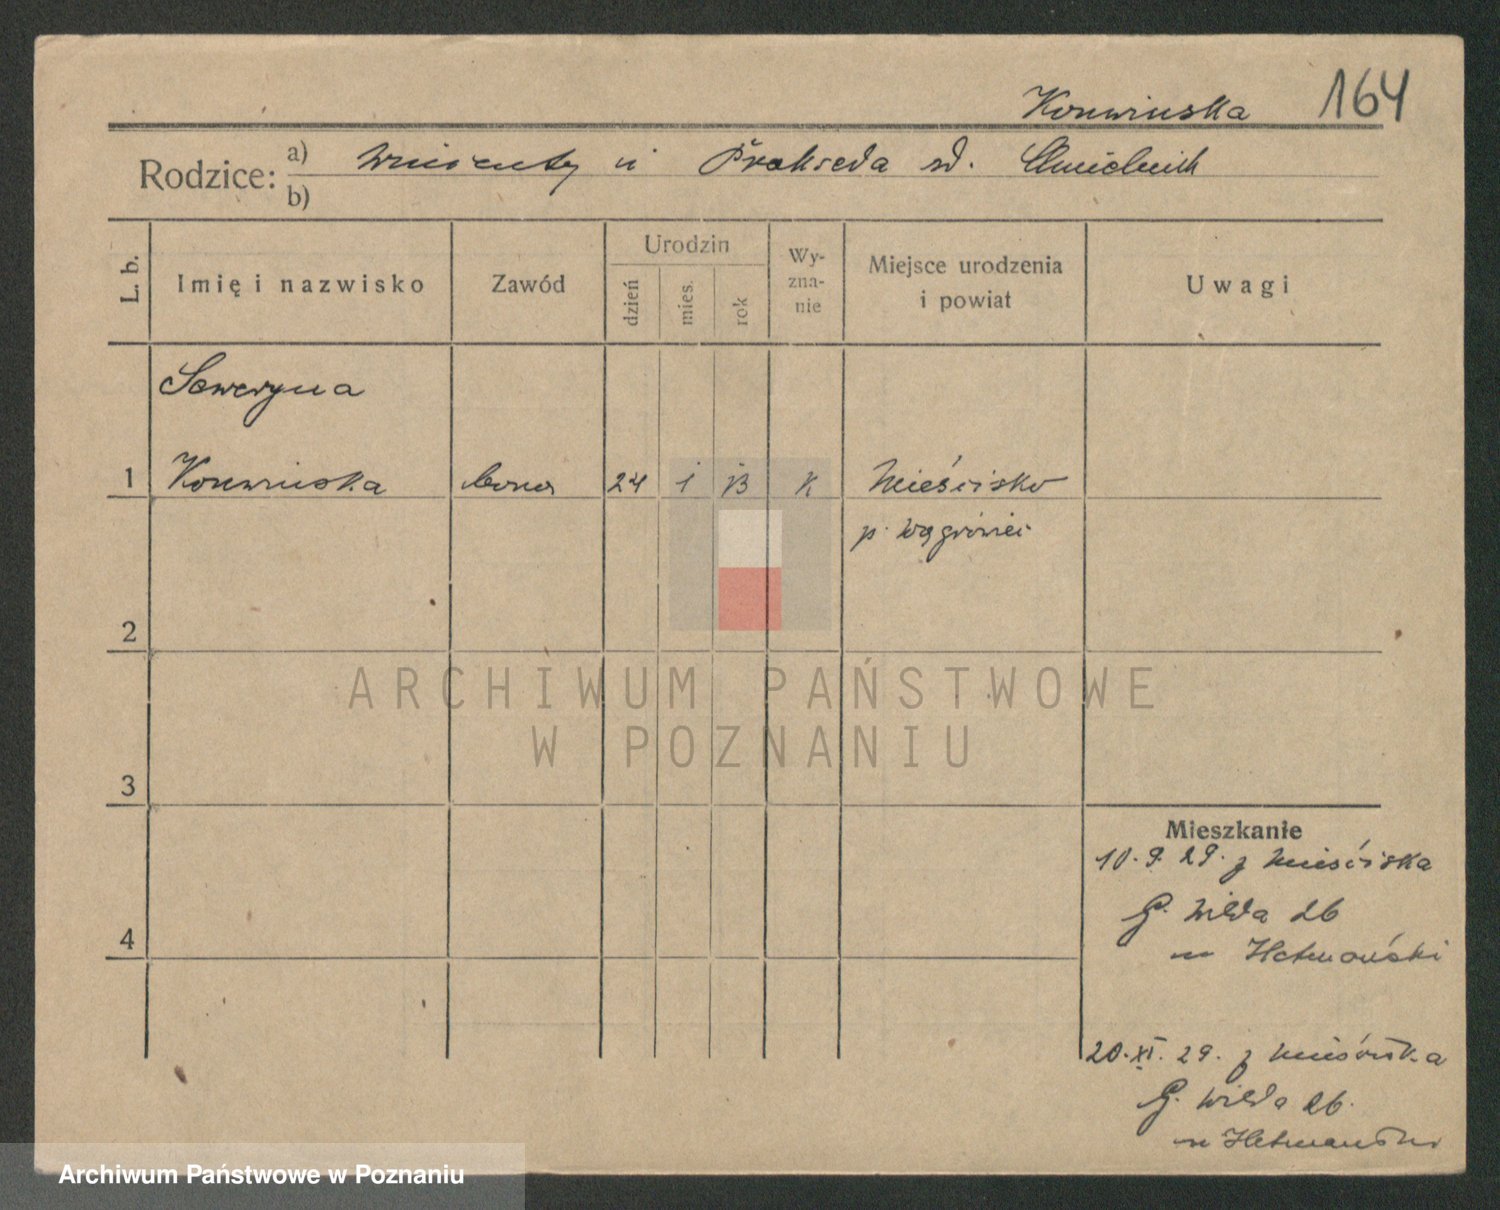 Konwinska 164
Rodzice: a) Wincenty i Prakseda zd. Chmielnik
b)
L. b. Imię i nazwisko Zawód Urodzin dzień mies. rok Wy-zna-nie Miejsce urodzenia i powiat Uwagi
Seweryna
1 Konwinska bona 24 1 13 K Mieścisko
p. Wągrówiec
2
ARCHIWUM PAŃSTWOWE
W POZNANIU
3
Mieszkanie
10. 9. 29. z Mieściska
G. Wilda 26
Hetmański
4
20. XI. 29. z Mieściska
G. Wilda 26.
Archiwum Państwowe w Poznaniu